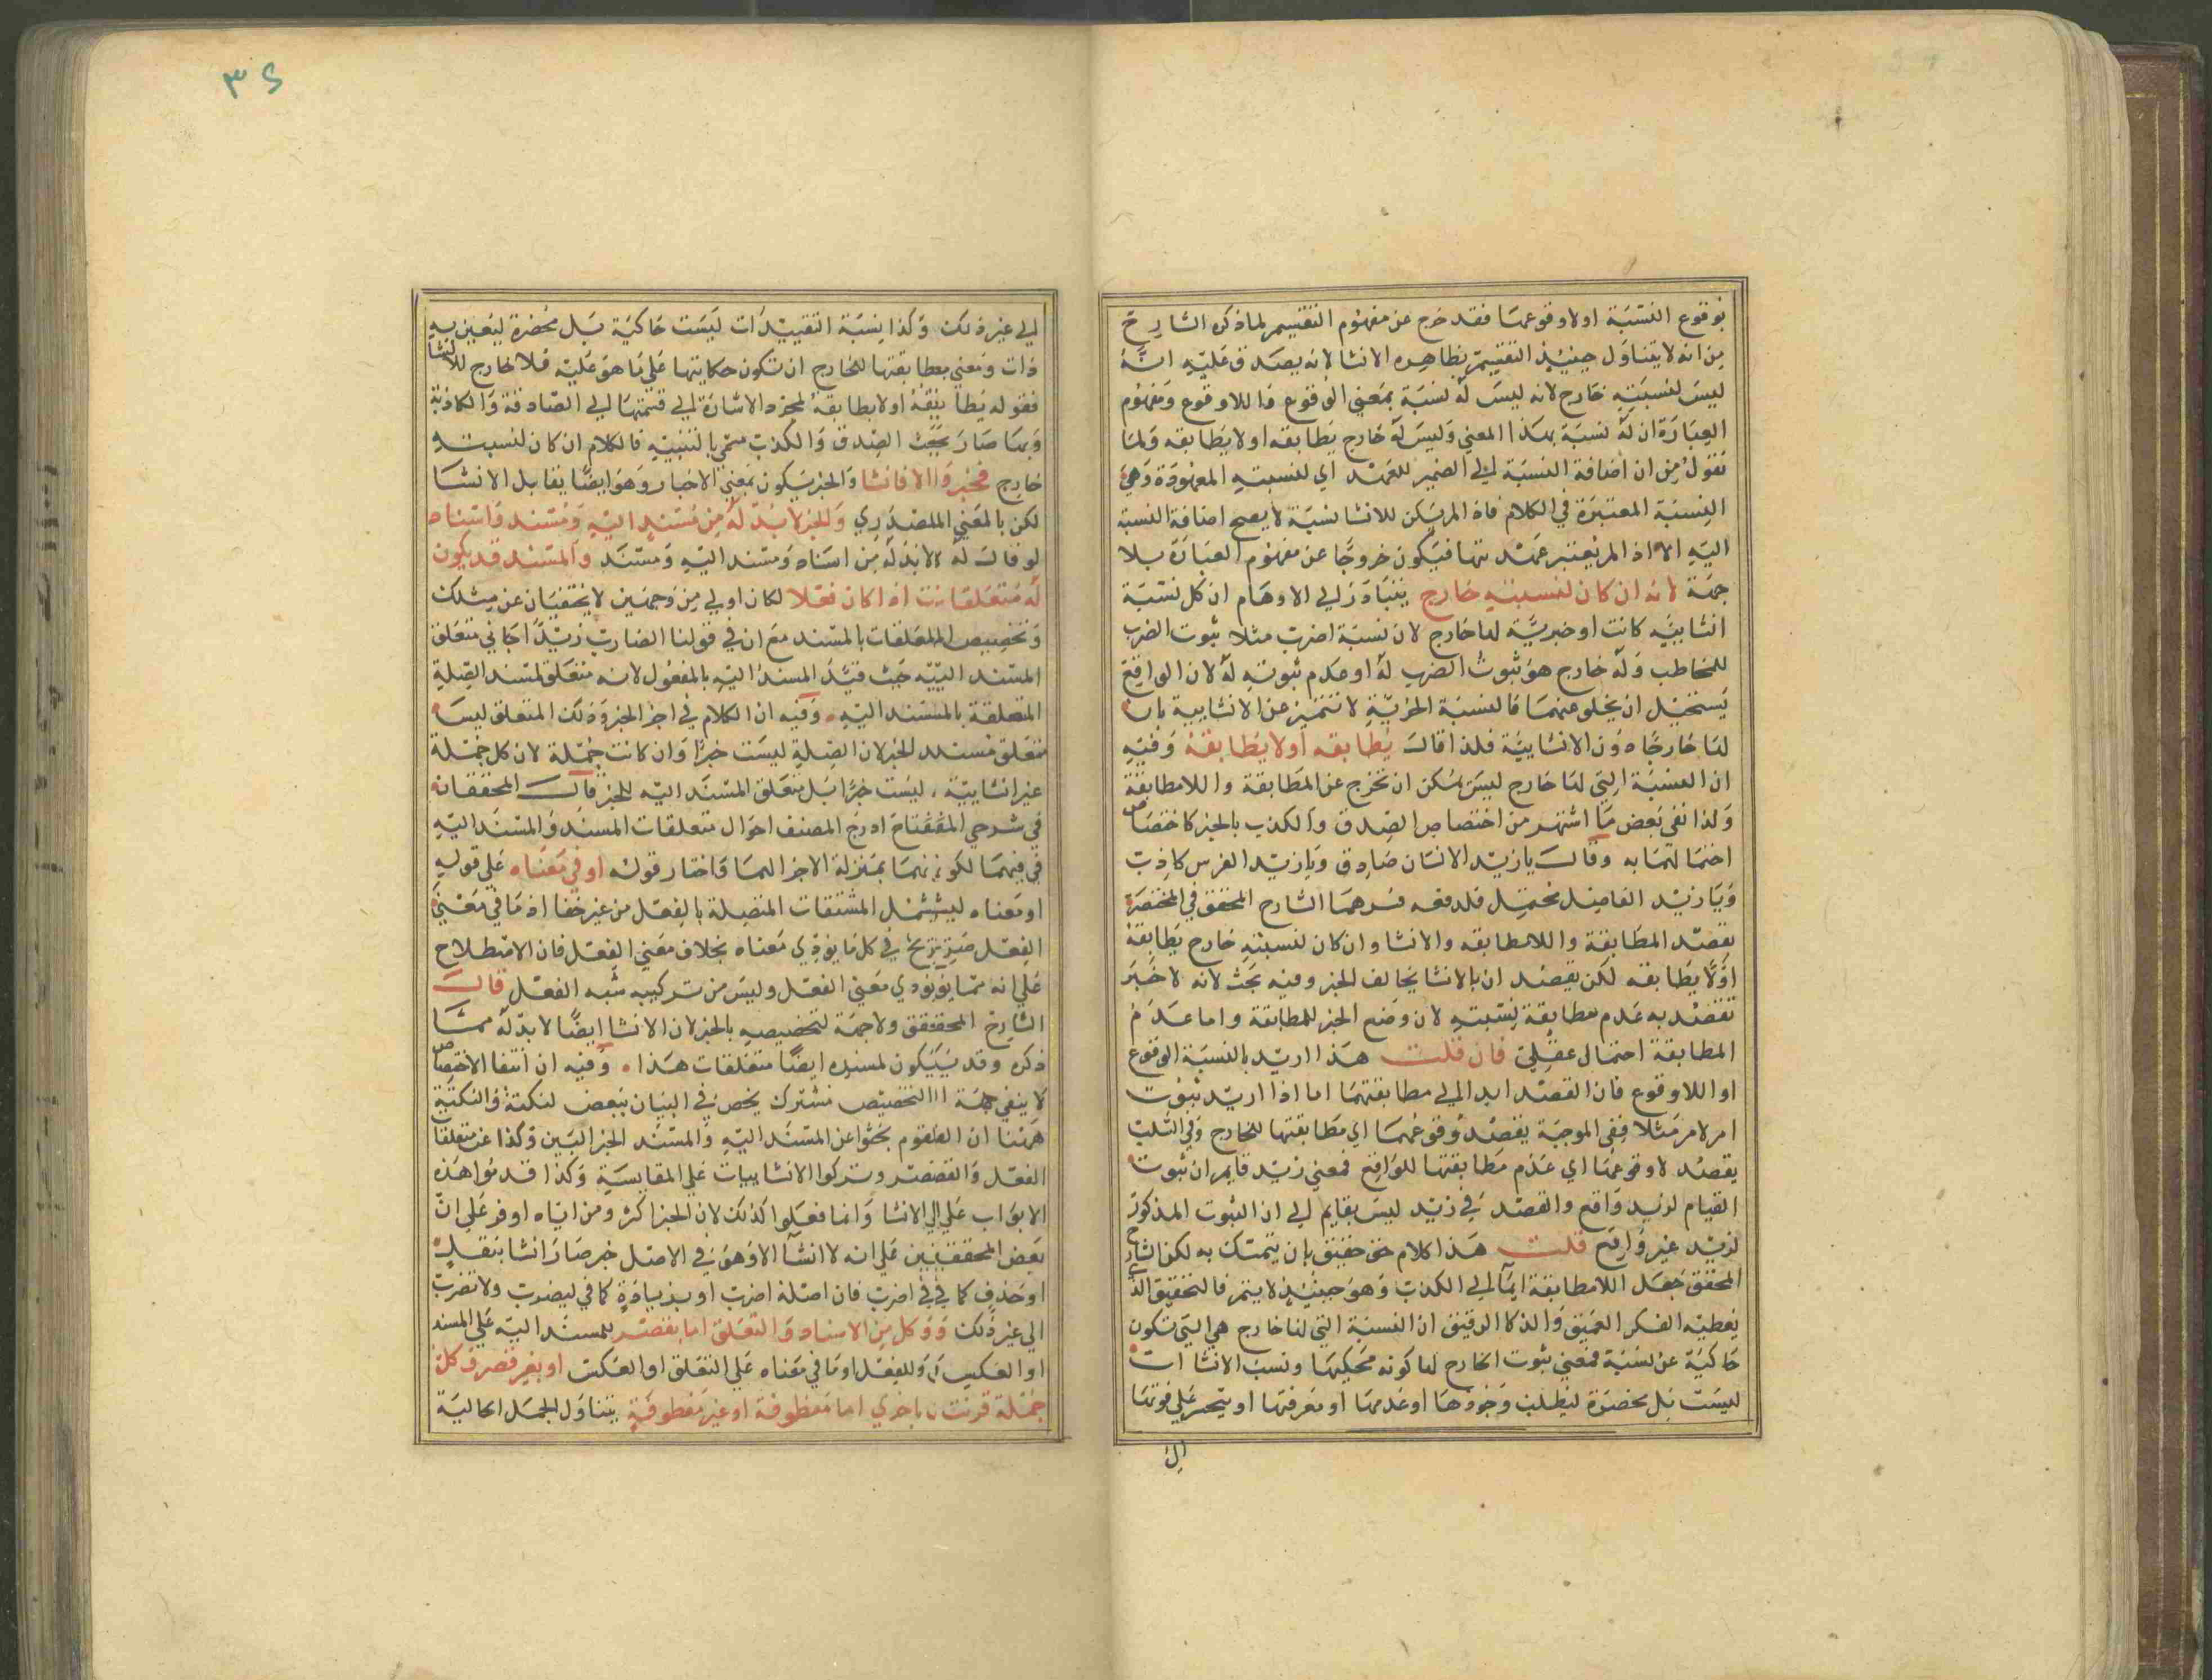 بوقوع النسبة اولاوقوعها فقد خرج عن مفهوم التقسيم لما ذكره الشارح
من انه لا يتناول حينئذ التقسيم بظاهره الانشا لانه يصدق عليه انه
ليس لنسبته خارج لانه ليس له نسبة بمعني الوقوع واللاوقوع ومفهوم
العبارة ان له نسبة بهذا المعني وليس له خارج يطابقه اولا يطابقه ولما
نقول من ان اضافة النسبة الي الضمير للعهد اي لنسبته المعهودة وهي
النسبة المعتبرة في الكلام فاذا لم يكن للانشا نسبة لا يصح اضافة النسبة
اليه الا اذ لم يعتبر عهديتها فيكون خروجا عن مفهوم العبارة بلا
جهة لانه ان كان لنسبته خارج يتبادر الي الاوهام ان كل نسبة
انشائية كانت اوخبرية لها خارج لان نسبة اضرب مثلا ثبوت الضرب
للمخاطب وله خارج هو ثبوت الضرب له اوعدم ثبوته له لان الواقع
يستحيل ان يخلو عنهما فالنسبة الخبرية لا تتميز عن الانشايية بان
لها خارجا دون الانشايية فلذا قال يطابقه اولا يطابقه وفيه
ان النسبة التي لها خارج ليس يمكن ان تخرج عن المطابقة واللامطابقة
ولذا نفي بعض ما اشتهر من اختصاص الصدق والكذب بالخبر كاختصاص
احتمالهما به وقال يا زيد الانسان صادق ويا زيد الفرس كاذب
ويا زيد الفاضل محتمل فلدفعه فسرهما الشارح المحقق في المختصر
بقصد المطابقة واللامطابقه والانشا وان كان لنسبته خارج يطابقه
اولا يطابقه لكن يقصد ان بالانشا يخالف الخبر وفيه بحث لانه لا خبر
تقصد به عدم مطابقة نسبته لان وضع الخبر للمطابقة واما عدم
المطابقة احتمال عقلي فان قلت هذا اريد بالنسبة الوقوع
او اللاوقوع فان القصد ابدا الي مطابقتهما اما اذا اريد ثبوت
امر لامر مثلا ففي الموجبة يقصد وقوعهما اي مطابقتها للخارج وفي السلب
يقصد لاوقوعها اي عدم مطابقتها للواقع فمعني زيد قايم ان ثبوت
القيام لزيد واقع والقصد في زيد ليس بقايم الي ان الثبوت المذكور
لزيد غير واقع قلت هذا كلام حق حقيق بان يتمسك به لكن الشارح
المحقق جعل اللامطابقة ايماالي الكذب وهو حينئذ لا يتم فالتحقيق الذي
يعطيه الفكر العميق والذكا الدقيق ان النسبة التي لها خارج هي التي تكون
حاكية عن نسبة فمعني ثبوت الخارج لها كونه محكيها ونسب الانشاات
ليست بل محضرة ليطلب وجودها اوعدمها او معرفتها او يتحسر علي فوتها
ال
٣٤
الي غير ذلك وكذا نسبة التقييدات ليست حاكية بل محضرة ليتعين به
ذات ومعني مطابقتها للخارج ان تكون حكايتها علي ما هو عليه فلا خارج للانشا
فقوله يطابقه اولا يطابقه لمجرد الاشارة الي قسمتها الي الصادقة والكاذبة
وبها صار بحث الصدق والكذب سمي بالتنبيه فالكلام ان كان لنسبته
خارج فخبر والا فانشا والخبر يكون بمعني الاخبار وهو ايضا يقابل الانشا
لكن بالمعني المصدري وللخبر لا بد له من مسند اليه ومسند واسناد
لو قال له لا بد له من اسناد ومسند اليه ومسند والمسند قد يكون
له متعلقات اذا كان فعلا لكان اولي من وجهين لا يختفيان عن مثلك
وتخصيص المتعلقات بالمسند مع ان في قولنا الضارب زيدا جاني متعلق
المسند اليه حيث قيد المسند اليه بالمفعول لانه متعلق لمسند الصلة
المتعلقة بالمسند اليه وفيه ان الكلام في اجزا الخبر وذلك المتعلق ليس
متعلق مسند الخبر لان الصلة ليست خبرا وان كانت جملة لان كل جملة
غير انشايية ليست خبرا بل متعلق المسند اليه للخبر قال المحققان
في شرحي المفتاح ادرج المصنف احوال متعلقات المسند والمسند اليه
في فيهما لكونهما بمنزلة الاجزا لهما واختار قوله او في معناه علي قوله
او معناه ليشمل المشتقات المتصلة بالفعل من غير خفا اذ ما في معني
الفعل صريح في كل ما يودي معناه بخلاف معني الفعل فان الاصطلاح
علي انه مما يودي معني الفعل وليس من تركيبه شبه الفعل قال
الشارح المحقق ولا جهة لتخصيصه بالخبر لان الانشا ايضا لا بد له مما
ذكره وقد يكون لمسنده ايضا متعلقات هذا وفيه ان انتفا الاختصاص
لا ينفي جهة التخصيص مشترك يخص في البيان ببعض لنكتة والنكتة
ههنا ان القوم بحثوا عن المسند اليه والمسند الخبرالبين وكذا عن متعلقا
الفعل والقصر وتركوا الانشاييات علي المقايسة وكذا قدموا هذه
الابواب علي الانشا وانما فعلوا كذلك لان الخبر اكثر ومزاياه اوفر علي ان
بعض المحققين علي انه لا انشا الا وهو في الاصل خبر صار انشا بنقل
او حذف كما في اضرب فان اصله اضرب او بزيادة كما في ليضرب ولا تضرب
الي غير ذلك وكل من الاسناد والتعلق اما بقصر للمسند اليه علي المسند
او العكس او للفعل او ما في معناه علي التعلق او العكس او بغير قصر وكل
جملة قرنت باخري اما معطوفة او غير معطوفة يتناول الجمل الحالية